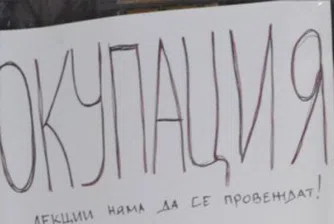 ОКУПАЦИЯ
ЛЕКЦИИ НЯМА ДА СЕ ПРОВЕЖДАТ!